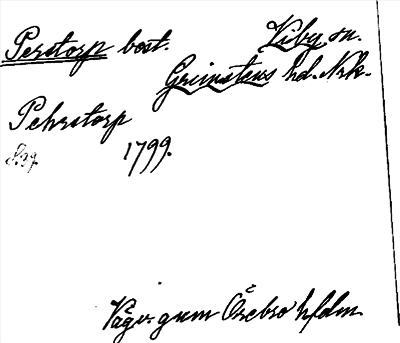 Perstorp bost. Viby sn.
Grimstens hd. Nrk.
Pehrstorp
1799.
Vägv. gnm Örebro h/dm.